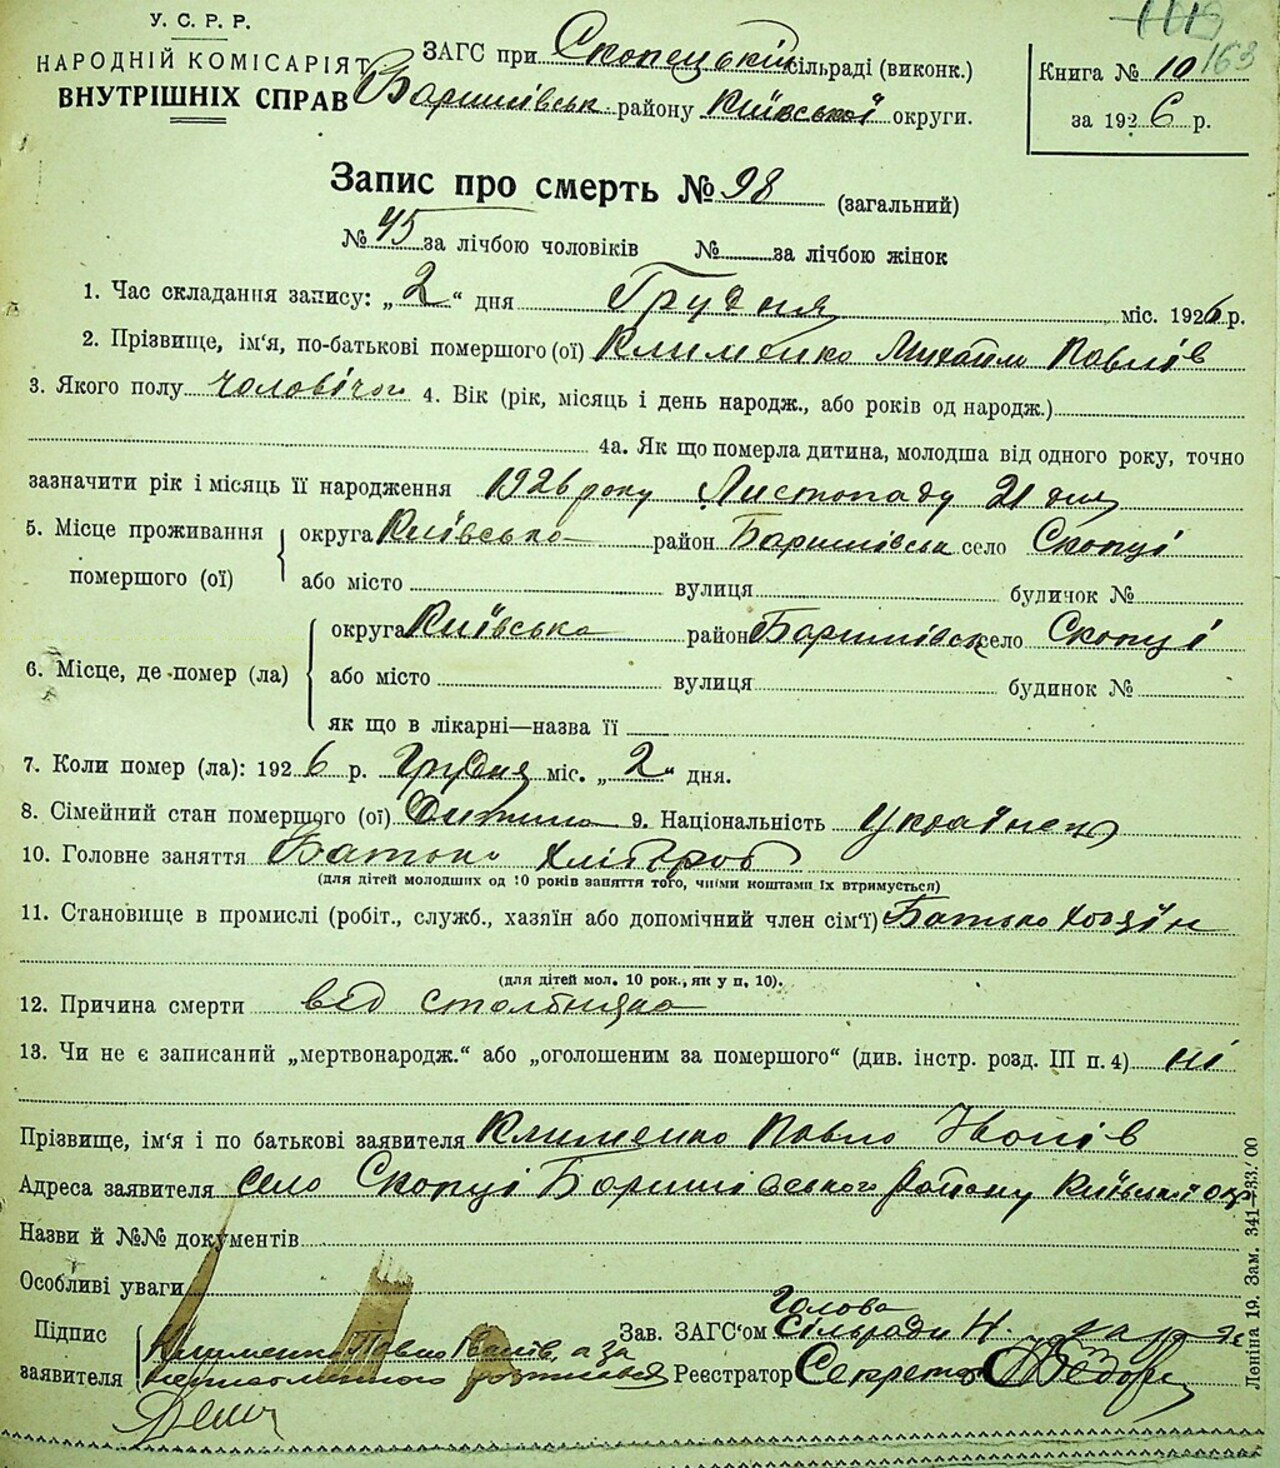 У. С. Р. Р.
НАРОДНІЙ КОМІСАРІЯТ
ВНУТРІШНІХ СПРАВ
ЗАГС при Скопецькій сільраді (виконк.)
Баришівськ. району Київської округи.
Книга № 10 163
за 1926 р.
Запис про смерть № 98 (загальний)
№ 45 за лічбою чоловіків № за лічбою жінок
1. Час складання запису: „2“ дня Грудня міс. 1926 р.
2. Прізвище, ім'я, по-батькові помершого (ої) Клименко Михайло Павлів
3. Якого полу чоловічого 4. Вік (рік, місяць і день народж., або років од народж.)
4а. Як що померла дитина, молодша від одного року, точно
зазначити рік і місяць її народження 1926 року Листопаду 21 дня
5. Місце проживання помершого (ої)
округа Київська район Баришівськ село Скопці
або місто вулиця будинок №
6. Місце, де помер (ла)
округа Київська район Баришівськ село Скопці
або місто вулиця будинок №
як що в лікарні—назва її
7. Коли помер (ла): 1926 р. грудня міс. „2“ дня.
8. Сімейний стан помершого (ої) Дитина 9. Національність Українець
10. Головне заняття Батько хлібороб
(для дітей молодших од 10 років заняття того, чиїми коштами їх втримується)
11. Становище в промислі (робіт., служб., хазяїн або допомічний член сім'ї) Батько хозяїн
(для дітей мол. 10 рок., як у п. 10).
12. Причина смерти від столбняка
13. Чи не є записаний „мертвонародж.“ або „оголошеним за помершого“ (див. інстр. розд. III п. 4) ні
Прізвище, ім'я і по батькові заявителя Клименко Павло Іванів
Адреса заявителя село Скопці Баришівського Району Київської окр
Назви й №№ документів
Особливі уваги
Підпис заявителя
Клименко Павло Іванів, а за
неписьменного росписався
Зав. ЗАГС'ом Голова Сільради Н.
Реєстратор Секретар
Леніна 19. Зам. 341—33.000